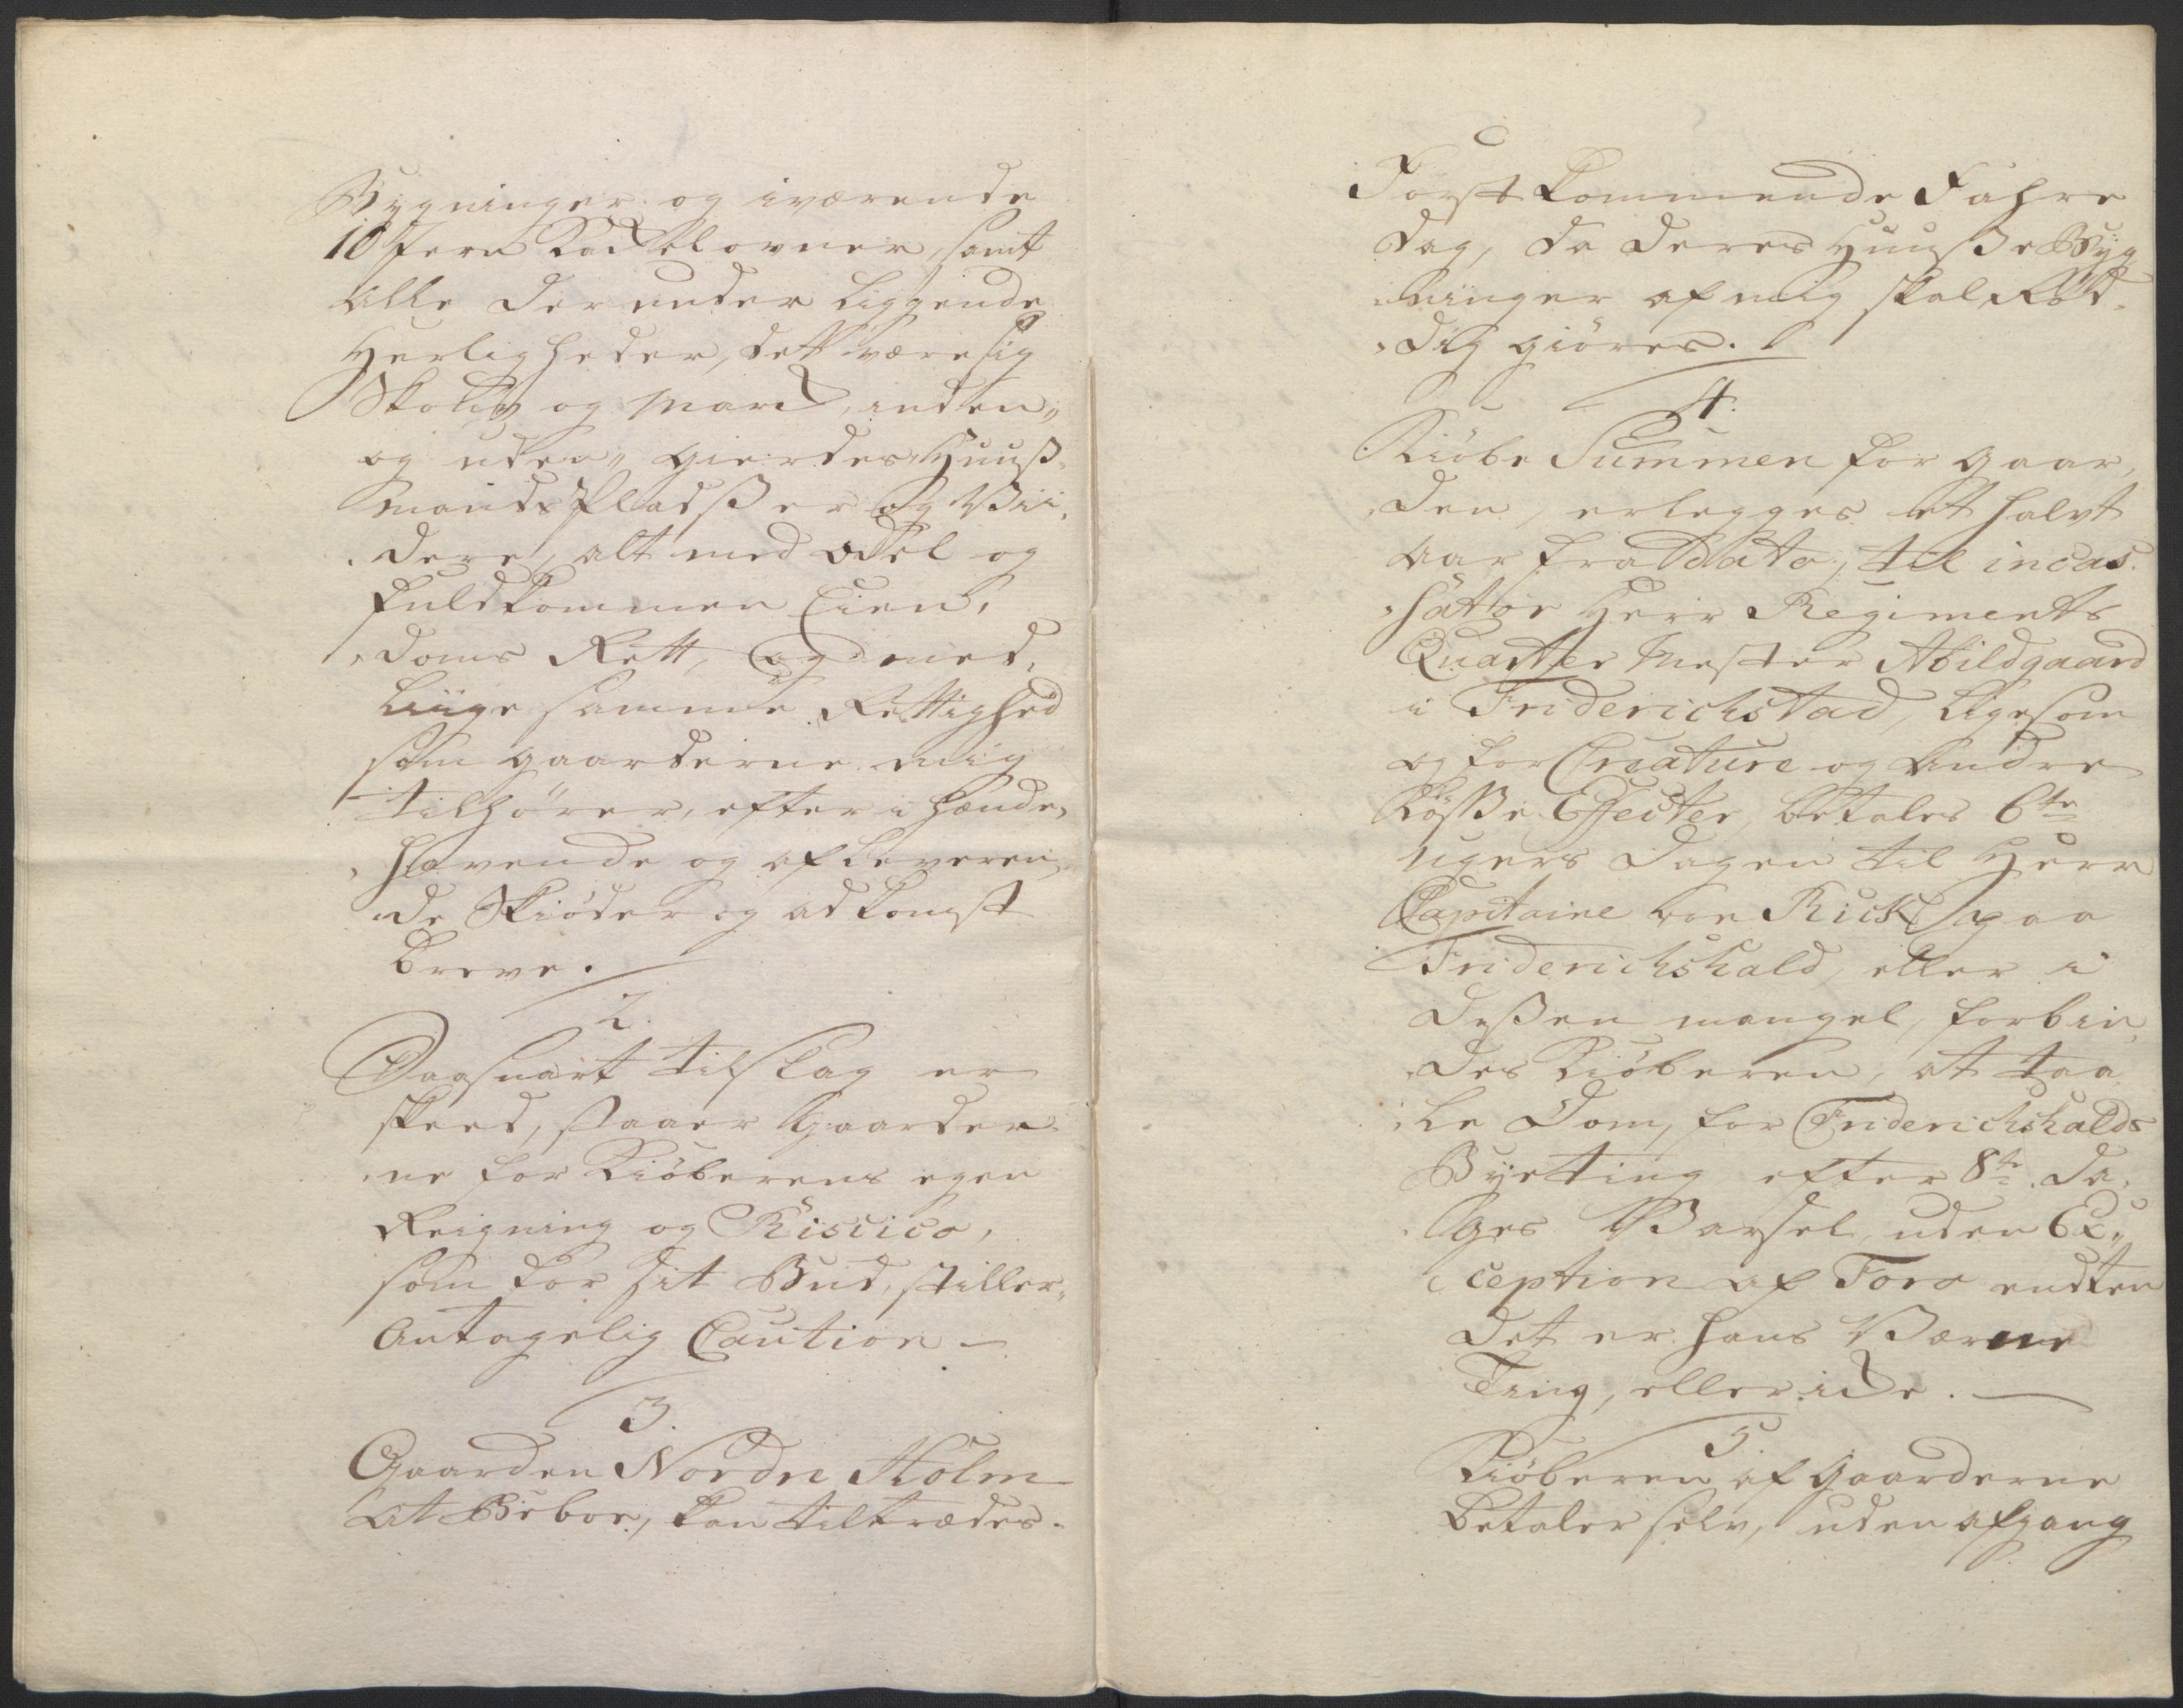 Bygninger og iværende
10 Jern Kackelovner, samt
Alle der under liggende
Herligheder, det være sig
Skoug og Marck, inden„
og uden„ gierdes Huus„
mands Pladsser og Vii„
„dere, alt med odel og
fuldkommen Eien„
„doms Rett, og med„
Liige samme Rettighed
som gaarderne mig
tilhører, efter i hænde„
„havende og afleveren„
„de Skiøder og adkomst
breve.
2.
Saasnart tilslag er
skeed, staaer Gaarder„
„ne for Kiøberens egen
Reigning og Riscico,
som for sit Bud, stiller„
Antagelig Caution –
3.
Gaarden Nordre Holm
At Beboe, kan tiltrædes.
Først kommende Fahre
dag, da deres Huusse Byg„
„ninger af mig skal Rød„
„dig giøres.
4.
Kiøbe Summen for gaar„
„den, erlegges et halvt
Aar fra Dato, til incas„
„sator Herr Regiments
Quarteer Mester Abildgaard
i Friderichstad, ligesom
og for Creature og Andre
Løsse Effecter, betales 6te
ugers dagen til Herr
Capitaine von Rick paa
Friderichshald, eller i
dessen mangel, forbin„
„des Kiøberen, at taa„
„le Dom, for Friderichshalds
Byeting efter 8te da„
„ges Varsel, uden Ex„
„ception af Foro endten
det er hans Værne
Ting, eller icke. —
5.
Kiøberen af gaarderne
betaler selv, uden afgang